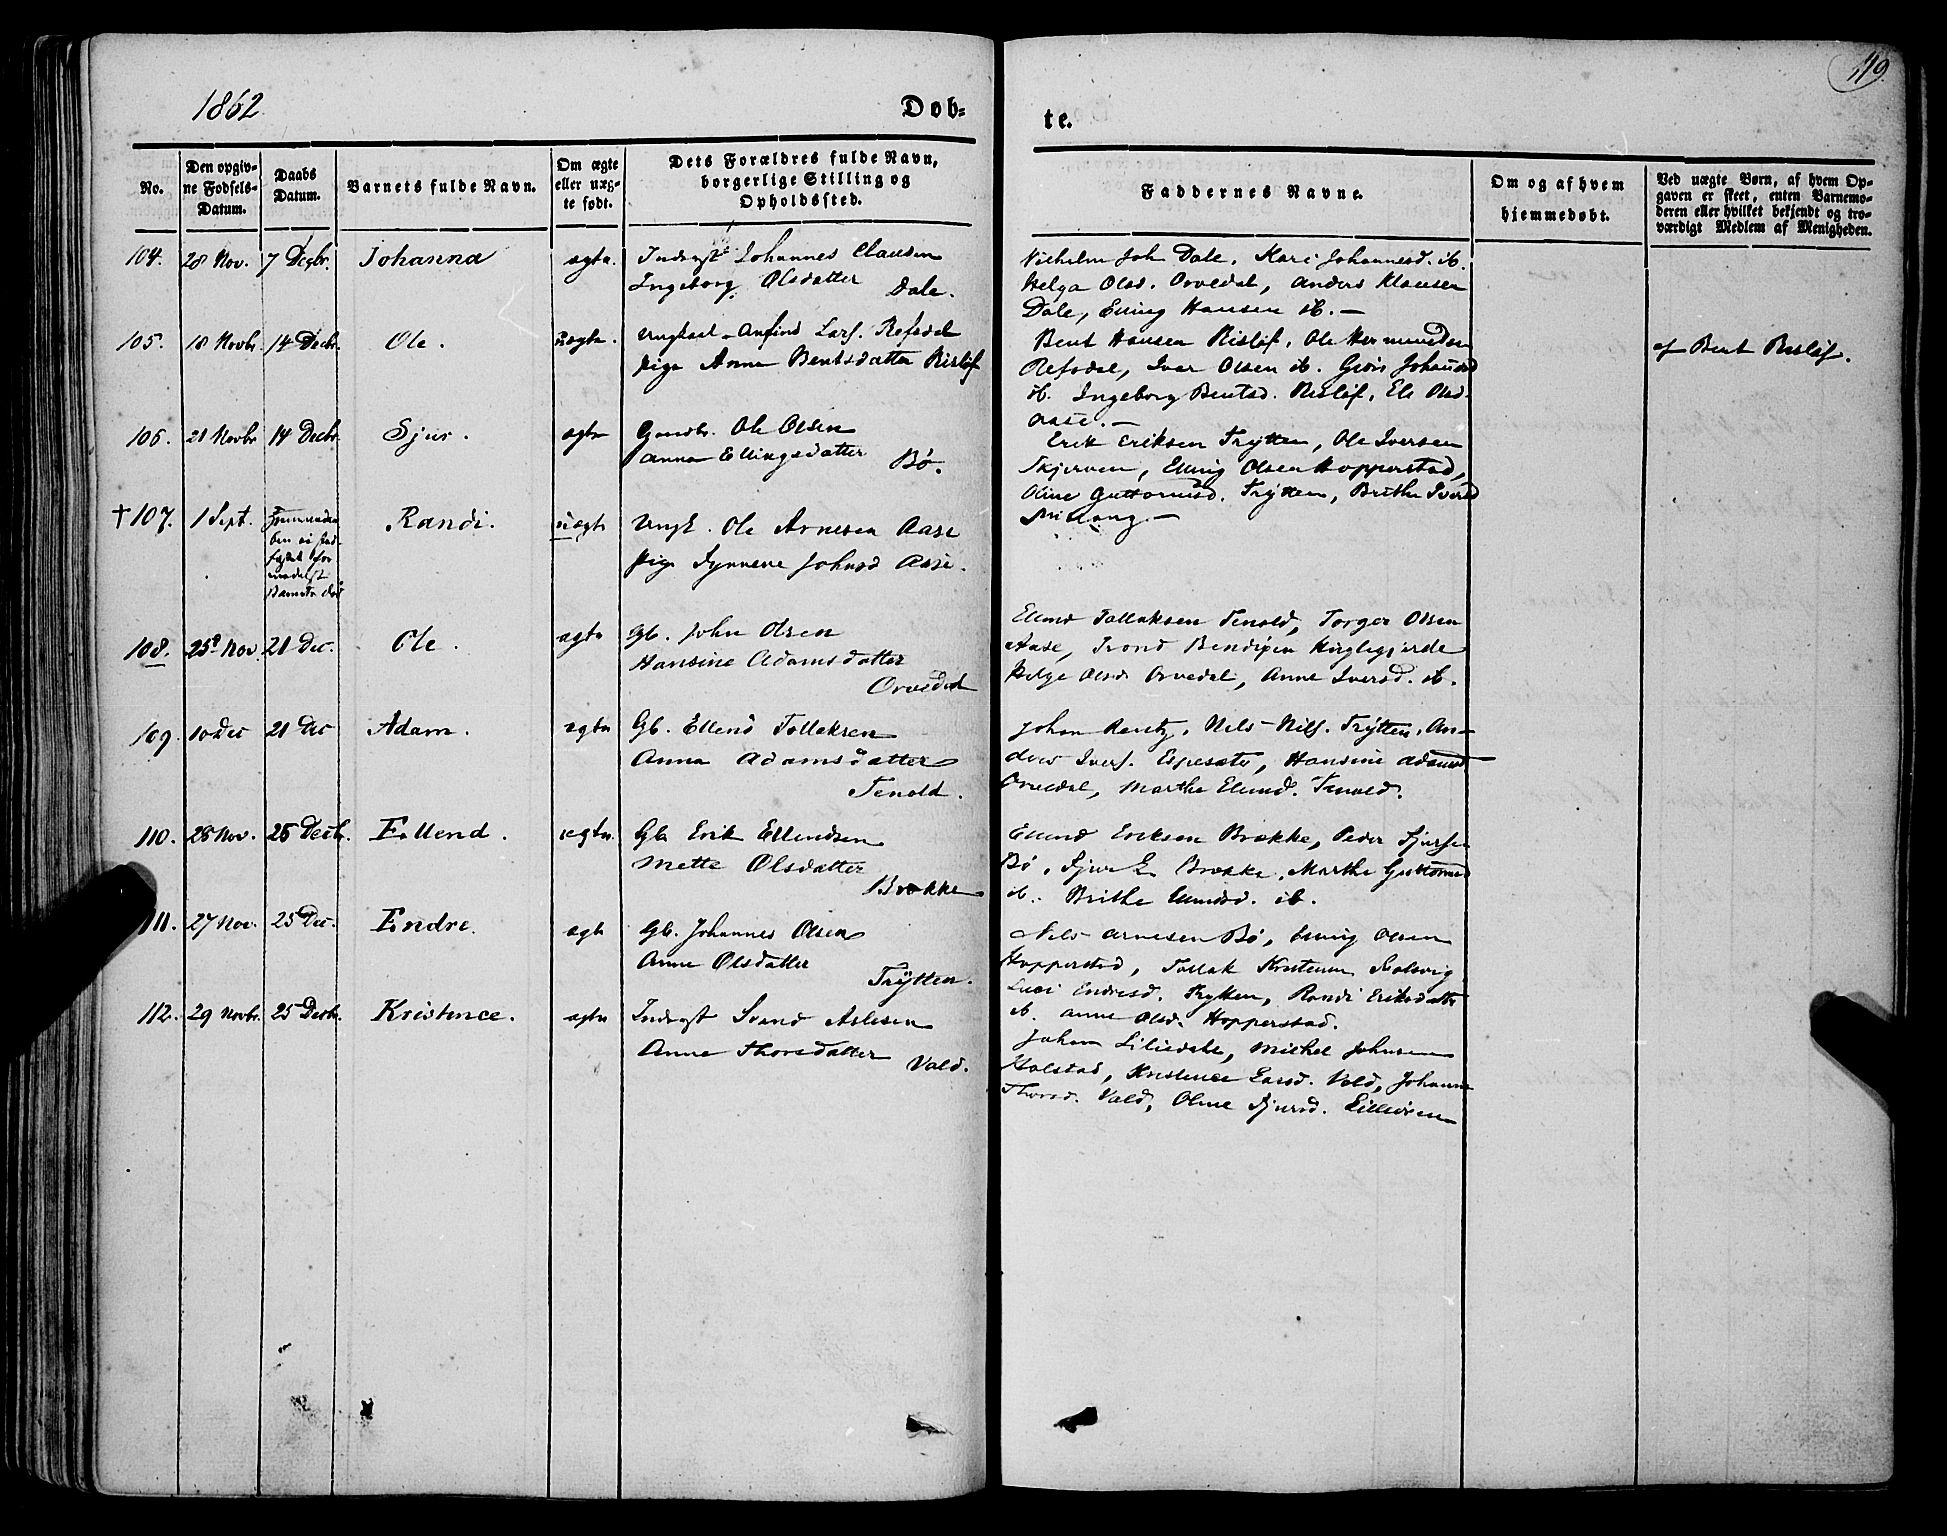 1862
Døb-
te.
119.
No.
Den opgiv-
ne Fødsels-
Datum.
Daabs
Datum.
Barnets fulde Navn.
Om ægte
eller uæg-
te født.
Dets Forældres fulde Navn,
borgerlige Stilling og
Opholdssted.
Faddernes Navne.
Om og af hvem
hjemmedøbt.
Ved uægte Børn, af hvem Op-
gaven er skeet, enten Barnemo-
deren eller hvilket bekjendt og tro-
værdigt Medlem af Menigheden.
104. 28 Nov. 7 Decbr. Johanna ægte. Inderst Johannes Clausen
Ingeborg Olsdatter Dale.
Vilhelm Joh Dale, Kari Johannesd. ib.
Helga Olsd. Orvedal, Anders Klausen
Dale, Elling Hansen ib. —
105. 18 Novbr. 14 Decbr. Ole. uægte. Ungkarl Anfind Lars. Refsdal
Pige Anna Bentsdatter Risløf
Bent Hansen Risløf, Ole Hermundsen
Refsdal, Ivar Olsen ib. Johannesd
ib. Ingeborg Bentsd. Risløf, Eli Olsd.
Aase. —
af Bent Risløf.
106. 21 Novbr 14 Decbr. Sjur. ægte Gaardbr. Ole Olsen
Anna Ellingsdatter Bø.
Erik Eriksen Trytten, Ole Iversen
Skjerven, Elling Olsen Hopperstad,
Oline Guttormsd. Trÿtten, Brithe Iversd
—
† 107. 1 Sept. Barnets død Randi. uægte Ungk. Ole Arnesen Aase
Pige Synneve Johnsd Aase.
108. 25 Nov. 21 Dec. Ole. ægte Gb. John Olsen
Hansine Adamsdatter
Orvedal
Ellend Tollaksen Tenold, Torger Olsen
Aase, Trond Bendixen
Helge Olsd. Orvedal, Anne Iversd. ib.
109. 10 Dec 21 Dec Adam. ægte Gb. Ellend Tollaksen
Anna Adamsdatter
Tenold.
Johan Rentz, Nils Nils. Trÿtten, An-
ders Ivers. Espesæte, Hansine Adamsd
Orvedal, Marthe Ellend. Tenold.
110. 28 Nov. 25 Decbr. Ellend. ægte. Gb Erik Ellendsen
Mette Olsdatter
Brække
Ellend Eriksen Brække, Peder Sjursen
Bø, Sjur E. Brække, Marthe Guttormsd
ib. Brithe Ellendsd. ib.
111. 27 Nov. 25 Dec. Endre. ægte Gb. Johannes Olsen
Anne Olsdatter
Trÿtten.
Nils Arnesen Bø, Elling Olsen
Hopperstad, Tollak Kristensen
Endresd. Trytten, Randi Eriksdatter
ib. Anne Olsd. Hopperstad.
112. 29 Novbr. 25 Decbr. Kristence. ægte Inderst Svend Aslesen
Anne Thorsdatter Vold.
Johan Liliedale, Michel Johnsen
Holstad, Kristence Larsd. Vold, Johanne
Thorsd. Vold, Oline Sjursd. Lillesøen